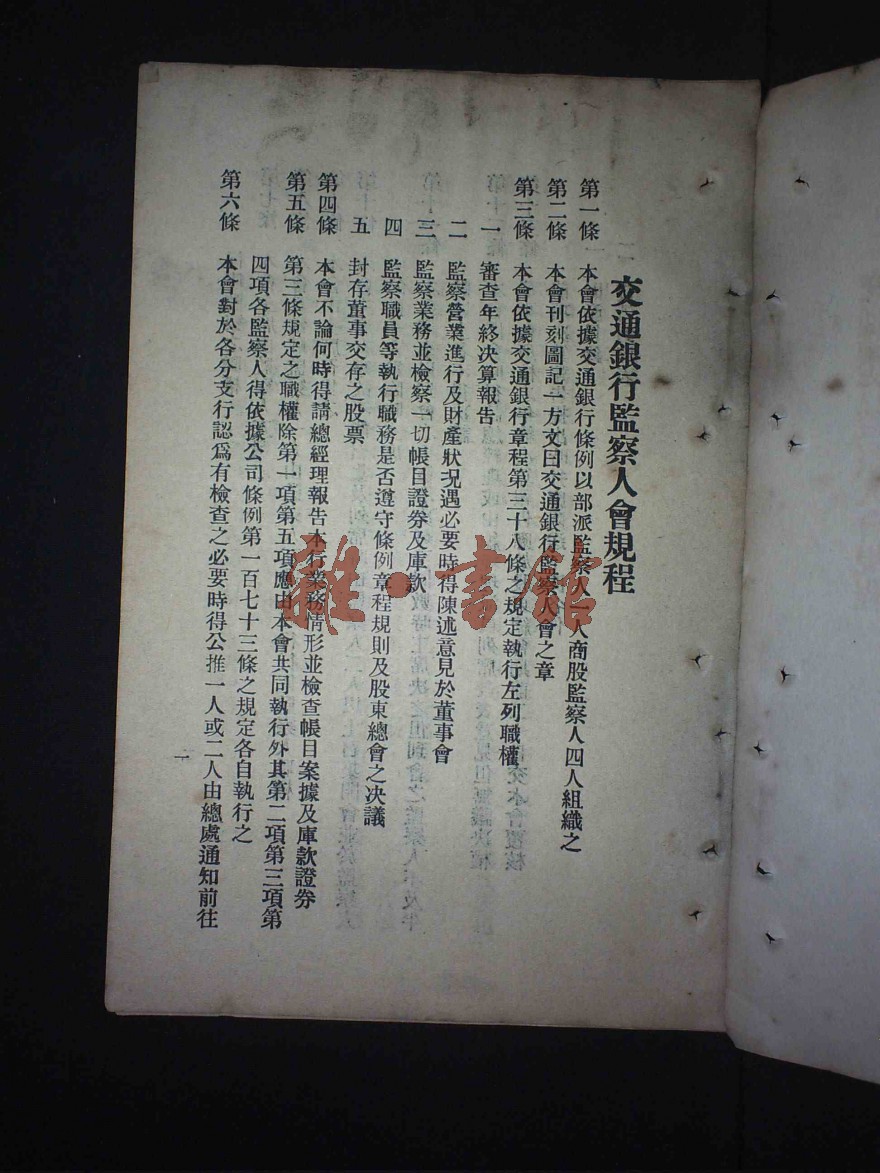 交通銀行監察人會規程
第一條　本會依據交通銀行條例以部派監察人一人商股監察人四人組織之
第二條　本會刊刻圖記一方文曰交通銀行監察人會之章
第三條　本會依據交通銀行章程第三十八條之規定執行左列職權
一　審查年終決算報告
二　監察營業進行及財產狀況遇必要時得陳述意見於董事會
三　監察業務並檢察一切帳目證券及庫款
四　監察職員等執行職務是否遵守條例章程規則及股東總會之决議
五　封存董事交存之股票
第四條　本會不論何時得請總經理報告本行業務情形並檢查帳目案據及庫款證券
第五條　第三條規定之職權除第一項第五項應由本會共同執行外其第二項第三項第
四項各監察人得依據公司條例第一百七十三條之規定各自執行之
第六條　本會對於各分支行認爲有檢查之必要時得公推一人或二人由總處通知前往
一
雜·書館